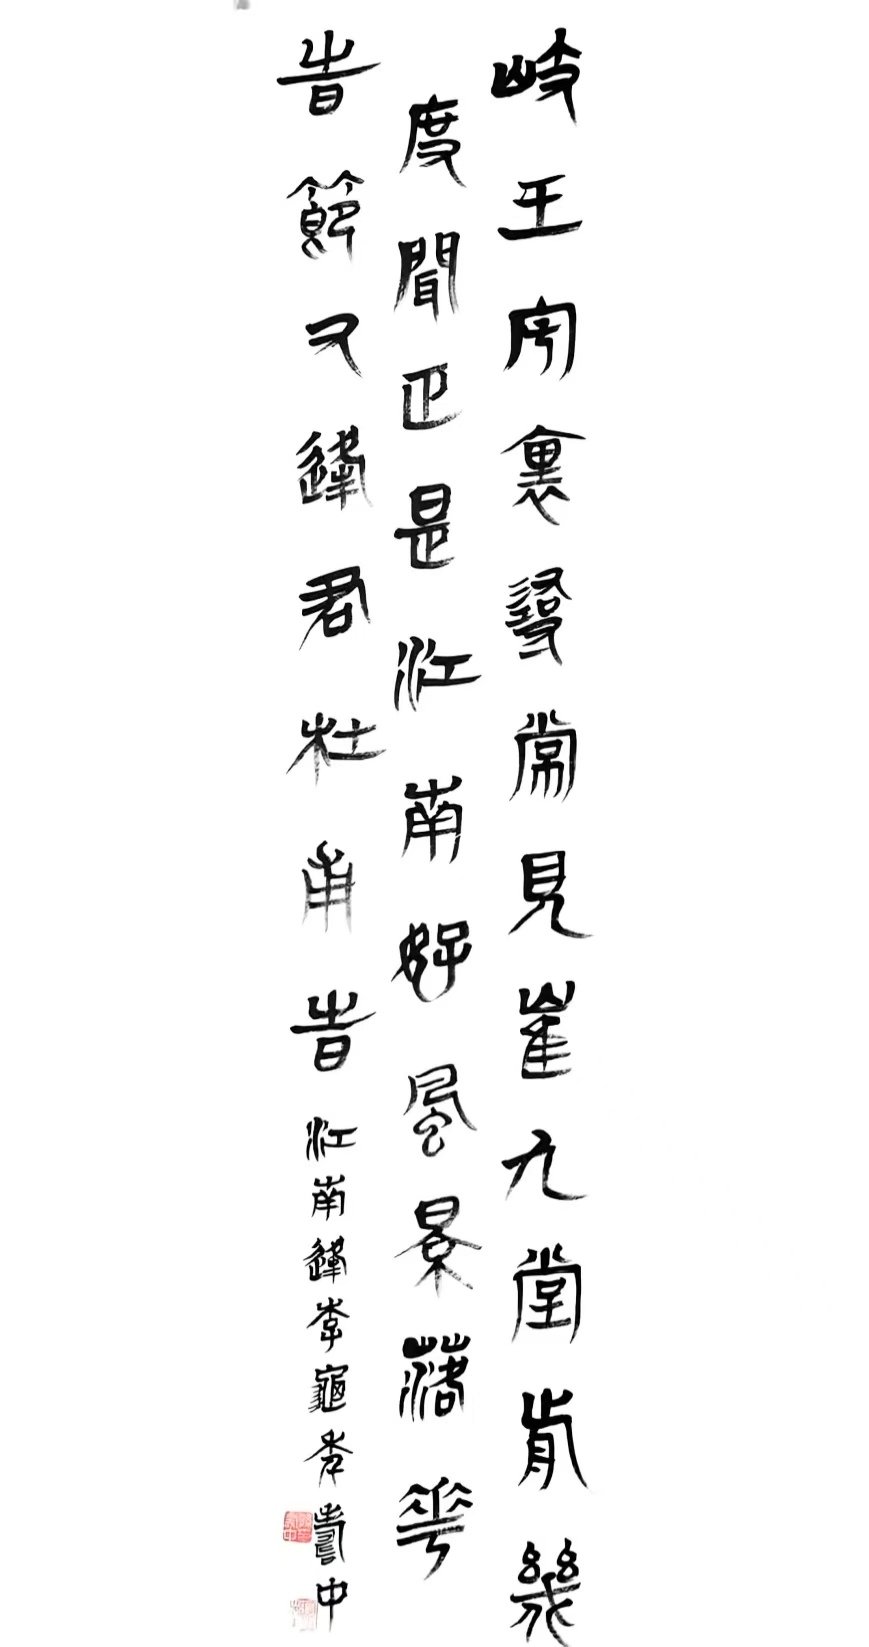 岐王宅裏尋常見崔九堂前幾
度聞正是江南好風景落華
旹節又逢君杜甫旹江南逢李龜年壽中